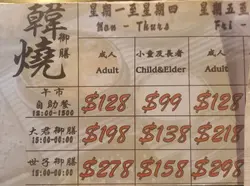 韓燒
御膳
星期一至星期四
Mon - Thurs
星期五至
Fri -
成人
Adult
小童及長者
Child&Elder
成人
Adult
午市
自助餐
$128
$99
$128
大君御膳
$198
$138
$218
世子御膳
$278
$158
$298